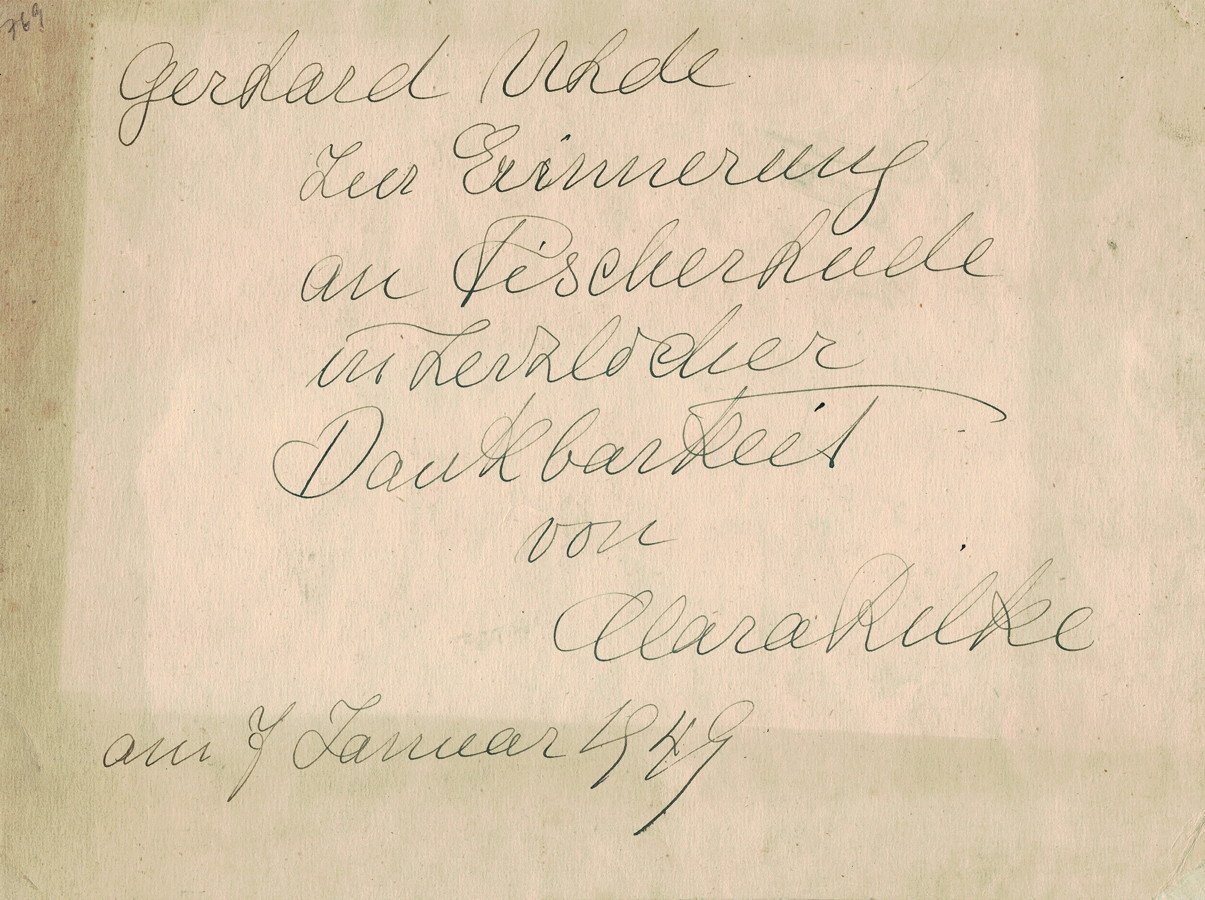 769
Gerhard Uhde
Zur Erinnerung
an Fischerhude
in herzlicher
Dankbarkeit
von
Clara Rilke
am 7 Januar 1949